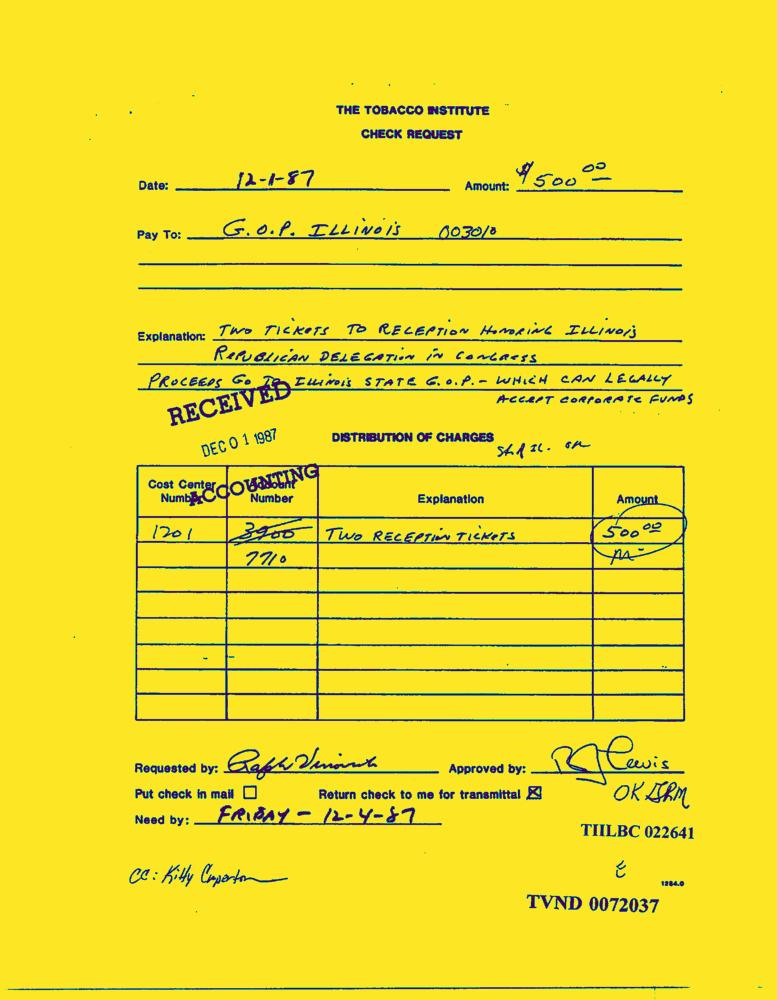 THE TOBACCO INSTITUTE
CHECK REQUEST
Date: 12-1-87 Amount: $500 00
Pay To: G.O.P. ILLINOIS 003010
Explanation: TWO TICKETS TO RECEPTION HONORING ILLINOIS
REPUBLICAN DELEGATION IN CONGRESS
PROCEEDS GO TO ILLINOIS STATE G.O.P. - WHICH CAN LEGALLY
ACCEPT CORPORATE FUNDS
RECEIVED
DEC 01 1987
ACCOUNTING
DISTRIBUTION OF CHARGES
Cost Center Number Account Number Explanation Amount
1201 3900 TWO RECEPTION TICKETS 500 00
7710
Requested by: Approved by: Lewis
Put check in mail ☐ Return check to me for transmittal ☒
OK
Need by: FRIDAY - 12-4-87
TIILBC 022641
CC: Kitty
1284.0
TVND 0072037